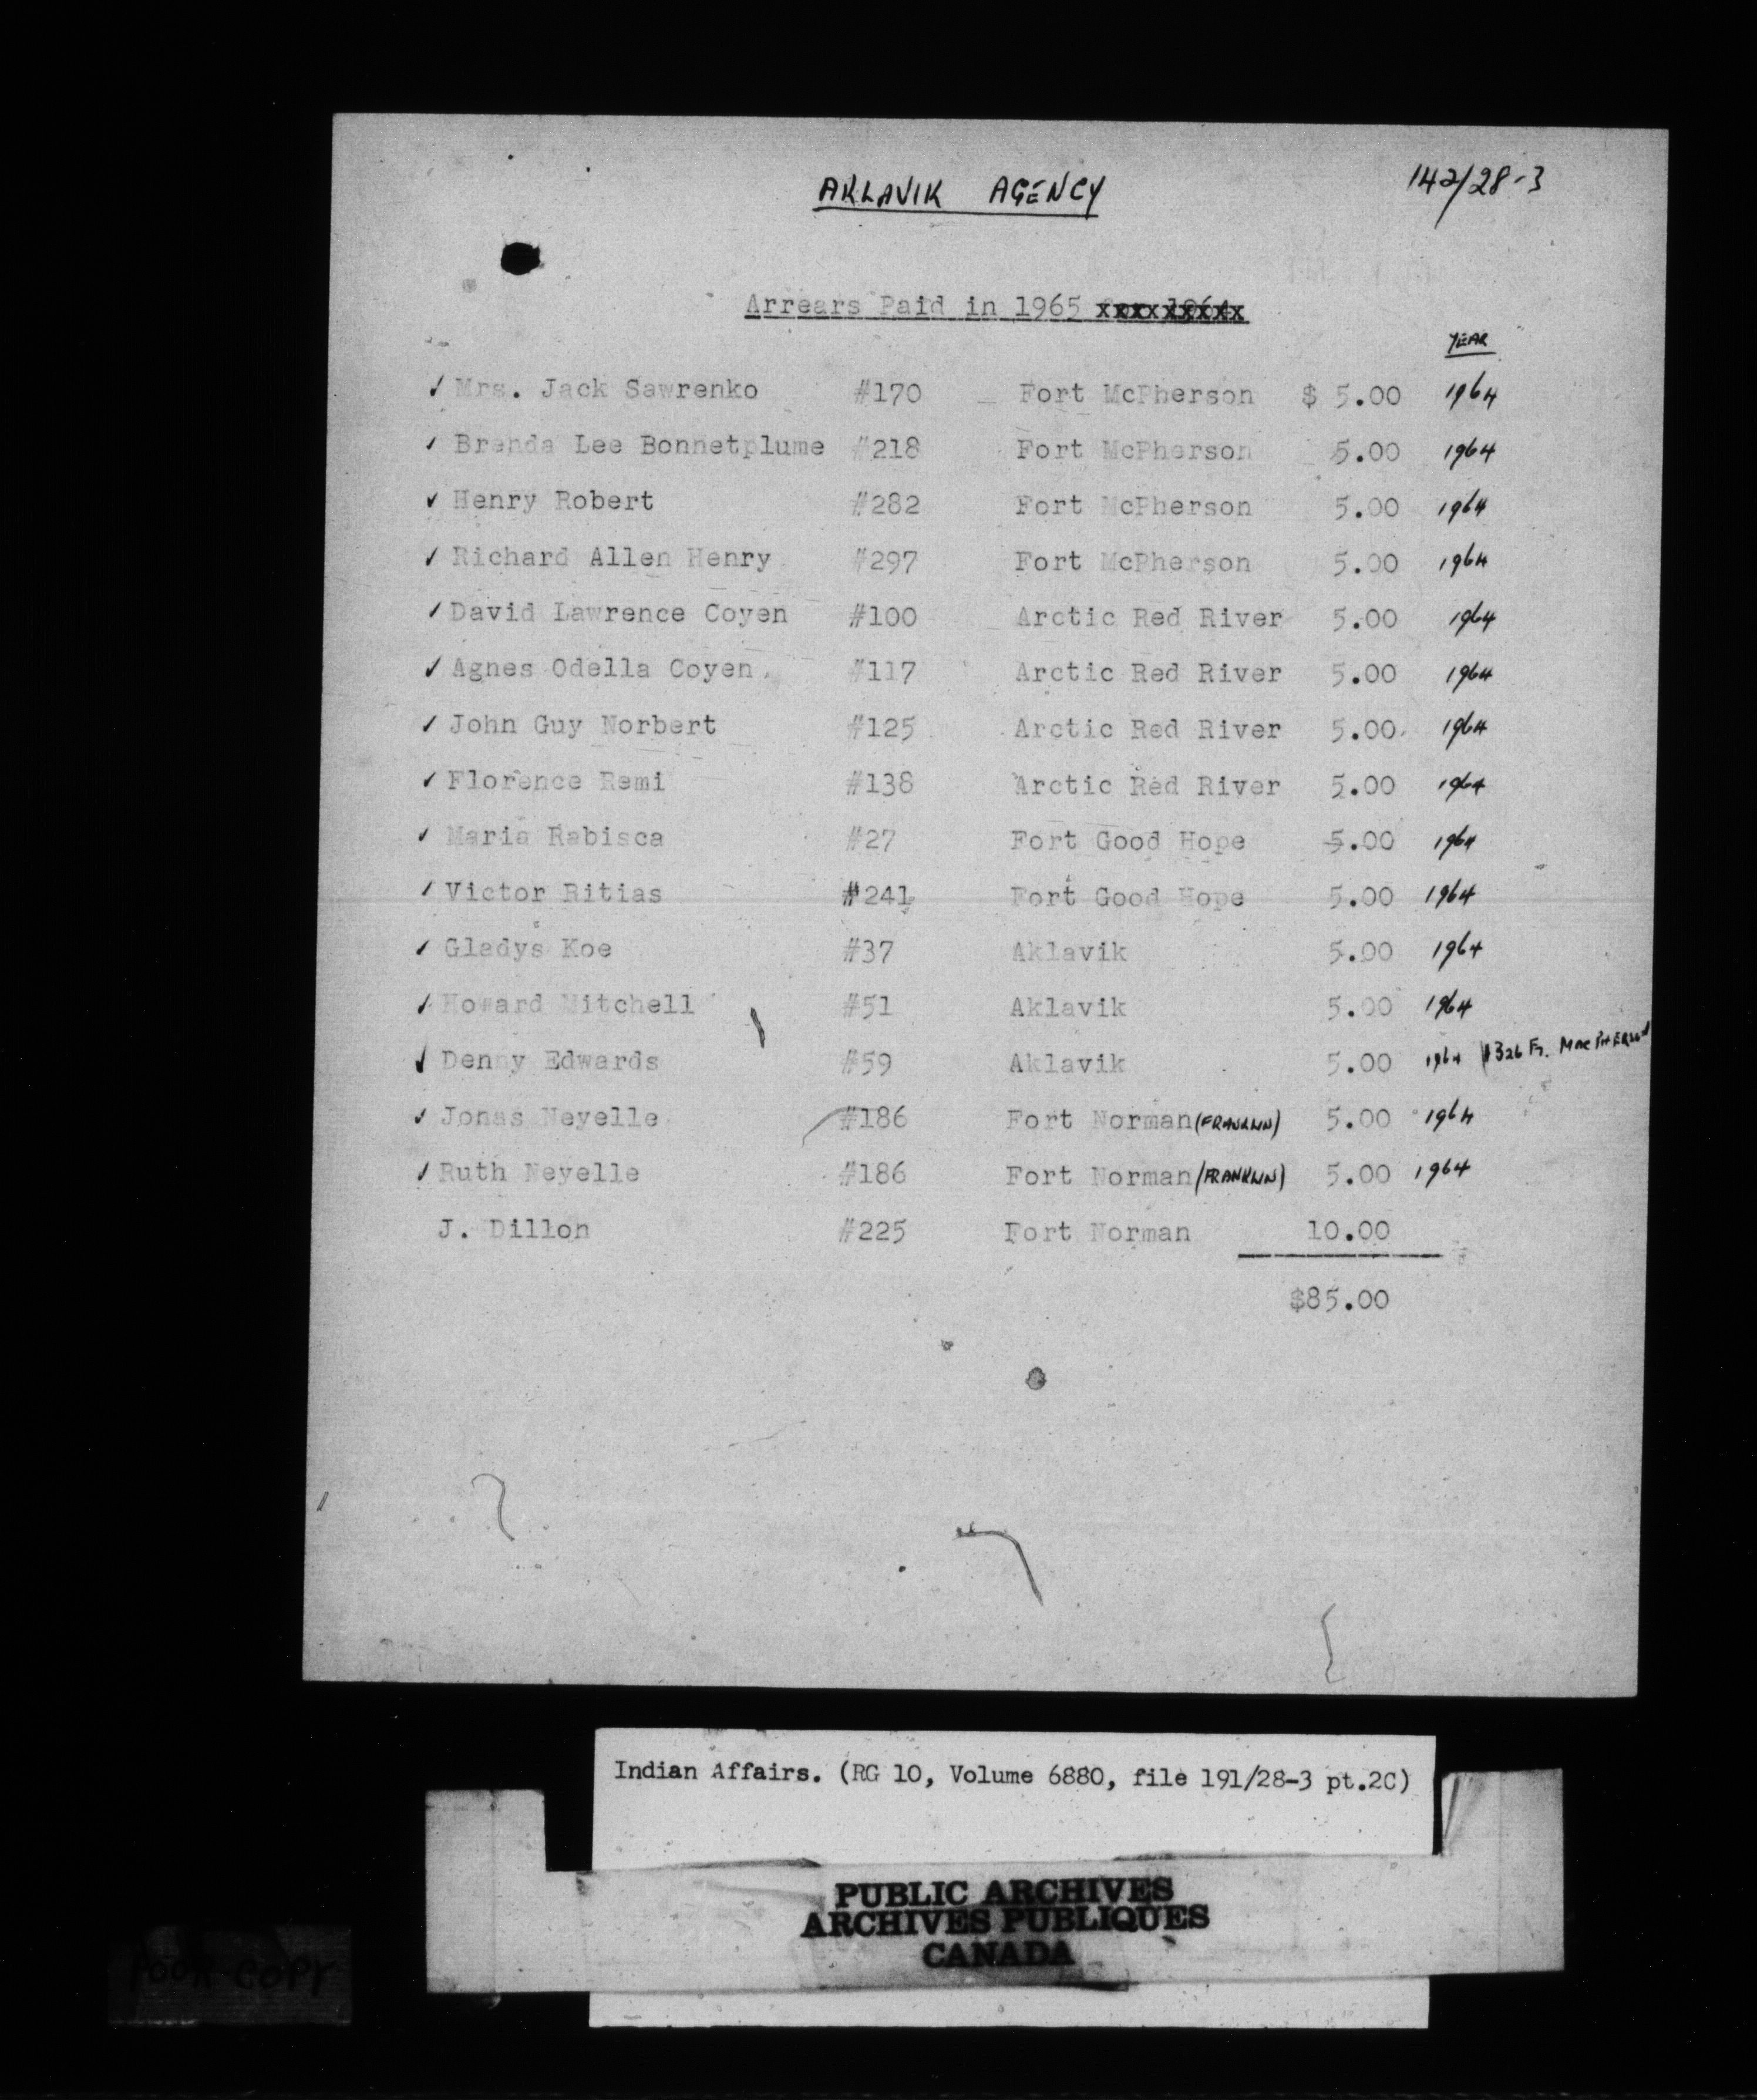 AKLAVIK AGENCY
142/28-3
Arrears Paid in 1965 for 1964
YEAR
✓ Mrs. Jack Sawrenko #170 Fort McPherson $ 5.00 1964
✓ Brenda Lee Bonnetplume #218 Fort McPherson 5.00 1964
✓ Henry Robert #282 Fort McPherson 5.00 1964
✓ Richard Allen Henry #297 Fort McPherson 5.00 1964
✓ David Lawrence Coyen #100 Arctic Red River 5.00 1964
✓ Agnes Odella Coyen #117 Arctic Red River 5.00 1964
✓ John Guy Norbert #125 Arctic Red River 5.00 1964
✓ Florence Remi #138 Arctic Red River 5.00 1964
✓ Maria Rabisca #27 Fort Good Hope 5.00 1964
✓ Victor Ritias #241 Fort Good Hope 5.00 1964
✓ Gladys Koe #37 Aklavik 5.00 1964
✓ Howard Mitchell #51 Aklavik 5.00 1964
✓ Denny Edwards #59 Aklavik 5.00 1964 #326 Ft. MacPHERSON
✓ Jonas Neyelle #186 Fort Norman (FRANKLIN) 5.00 1964
✓ Ruth Neyelle #186 Fort Norman (FRANKLIN) 5.00 1964
J. Dillon #225 Fort Norman 10.00
$85.00
Indian Affairs. (RG 10, Volume 6880, file 191/28-3 pt.2C)
PUBLIC ARCHIVES
ARCHIVES PUBLIQUES
CANADA
POOR COPY